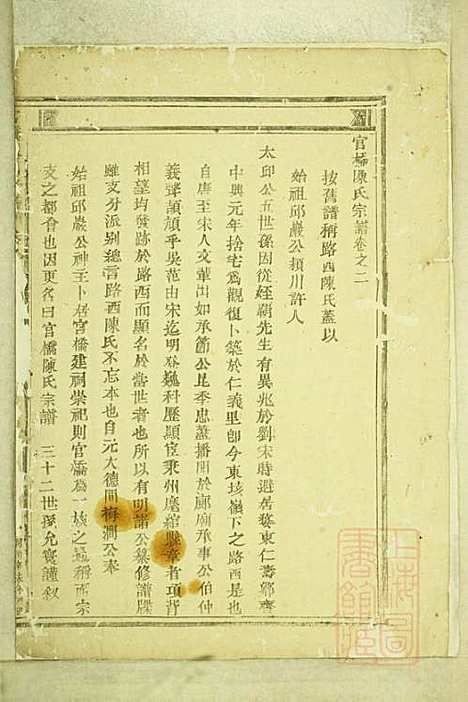 官橋陳氏宗譜卷之二
按舊譜稱路西陳氏蓋以
始祖邱巖公潁川許人
太邱公五世孫因從姪覇先生有異兆於劉宋時避居婺東仁壽鄉齊
中興元年捨宅爲觀復卜築於仁義里卽今東垓嶺下之路西是也
自唐至宋人文輩出如承節公昆季忠蓋播聞於廊廟承事公伯仲
義聲頡頏乎吳范由宋迄明登巍科歷顯宦秉州麾綰縣章者項背
相望均發跡於路西而顯名於當世者也所以有明諸公纂修譜牒
雖支分派别總言路西陳氏不忘本也自元大德間梅澗公奉
始祖邱巖公神主卜居官橋建祠崇祀則官橋爲一族之 稱西宗
支之都會也因更名曰官橋陳氏宗譜 三十二世孫允寳謹敘
上海圖書館藏